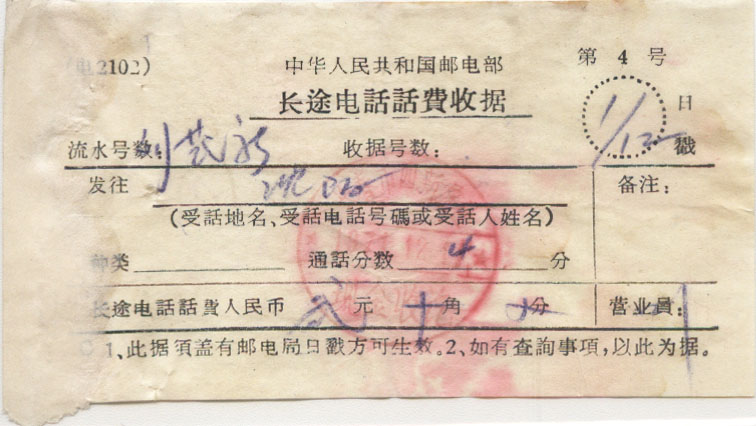 (电2102)
中华人民共和国邮电部
第 4 号
长途电話話費收据
日
戳
1/12
流水号数:
收据号数:
发往 沈阳
备注:
(受話地名、受話电話号碼或受話人姓名)
种类 通話分数 4 分
长途电話話費人民币 弍 元 角 分 营业員:
1、此据須盖有邮电局日戳方可生效。2、如有查詢事項,以此为据。